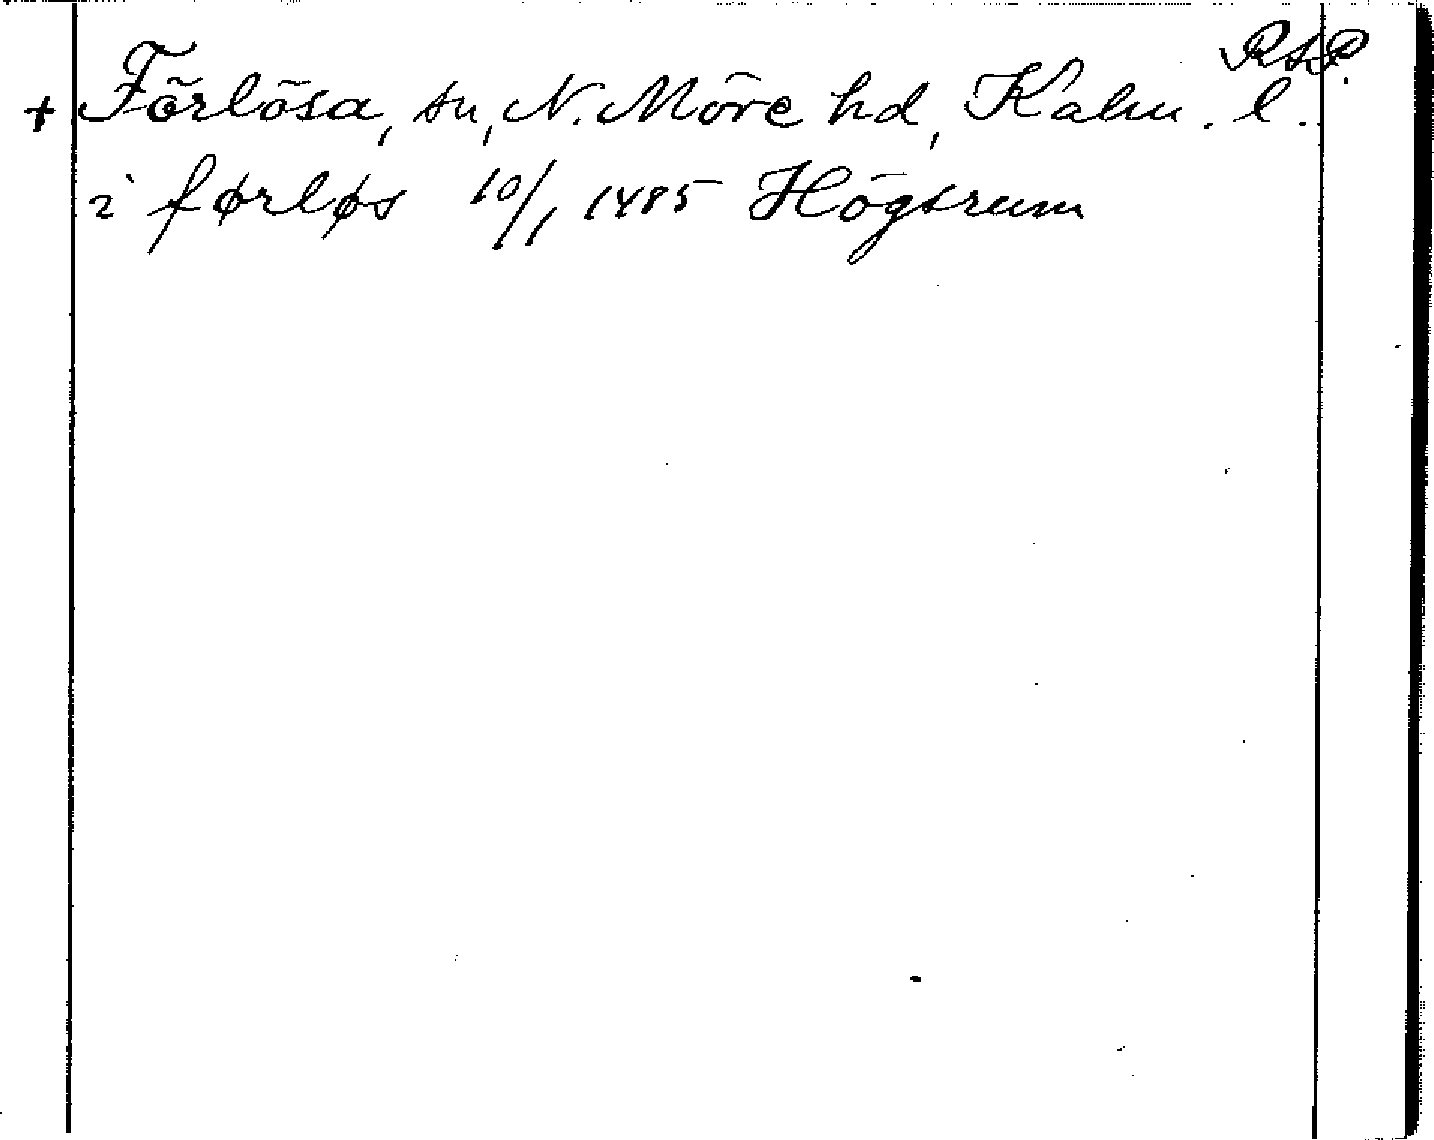 RAP.
+ Förlösa, sn, N. Möre hd, Kalm. l.
i førløs 10/1 1485 Högsrum